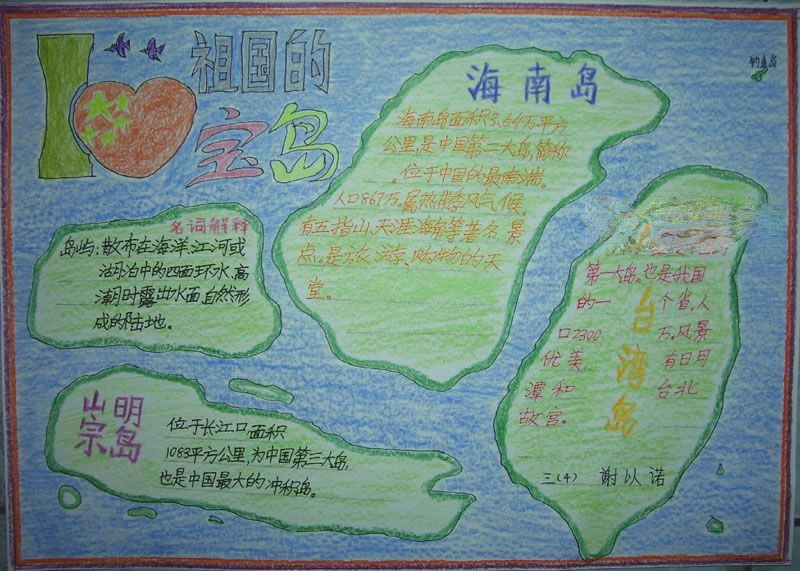 I
祖国的
宝岛
钓鱼岛
海南岛
海南岛面积3.54万平方
公里,是中国第二大岛,简称
位于中国的最南端。
人口867万。属热带季风气候。
有五指山、天涯海角等著名景
点。是旅、游、购物的天
堂。
名词解释
岛屿:散布在海洋、江河或
湖泊中的四面环水、高
潮时露出水面、自然形
成的陆地。
崇明岛
位于长江口面积
1083平方公里,为中国第三大岛,
也是中国最大的冲积岛。
台湾岛
第一大岛。也是我国
的一个省。人
口2300万。风景
优美,有日月
潭和台北
故宫。
三(4) 谢以诺